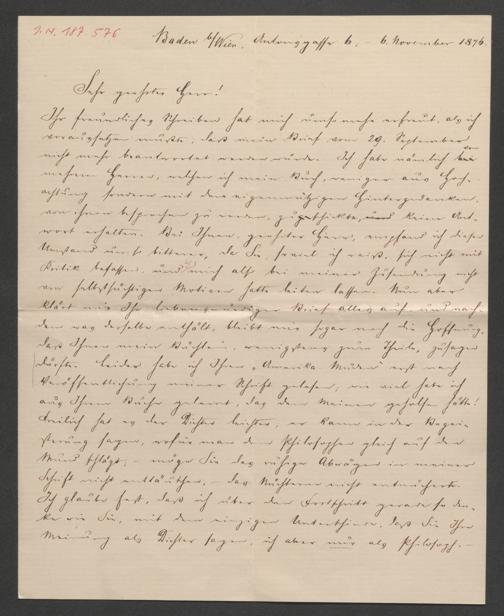 I.N. 187.576
Baden b/Wien. Antonsgasse 6. – 6. November 1876.
Sehr geehrter Herr!
Ihr freundliches Schreiben hat mich umso mehr erfreut, als ich
voraussetzen mußte, daß mein Brief vom 29. September
nicht mehr beantwortet werden würde. Ich habe nämlich von
mehren Herren, welchen ich mein Buch, weniger aus Hoch-
achtung sondern mit dem eigennützigen Hintergedanken,
von ihnen besprochen zu werden, zuschickte, keine Ant-
wort erhalten. Bei Ihnen, geehrter Herr, empfand ich diesen
Umstand umso bitterer, da Sie, soviel ich weiß, sich nicht mit
Kritik befassen, und mich also bei meiner Zusendung nicht
von selbstsüchtigen Motiven hatte leiten lassen. Nun aber
klärt mir Ihr liebenswürdiger Brief alles auf, und nach
dem was derselbe enthält, bleibt mir sogar noch die Hoffnung,
daß Ihnen mein Büchlein, wenigstens zum Theile, zusagen
dürfte. Leider habe ich Ihren „Amerika Müden" erst nach
Veröffentlichung meiner Schrift gelesen; wie viel habe ich
aus Ihrem Buche gelernt, das dem Meinen geholfen hätte!
Freilich hat es der Dichter leichter, er kann in der Begei-
sterung sagen, wofür man den Philosophen gleich auf den
Mund schlägt, – möge Sie das ruhige Abwägen in meiner
Schrift nicht enttäuschen, – das Nüchterne nicht ernüchtern.
Ich glaube fest, daß ich über den Fortschritt gerade so den-
ke wie Sie, mit dem einzigen Unterschiede, daß Sie Ihre
Meinung als Dichter sagen, ich aber nur als Philosoph. –